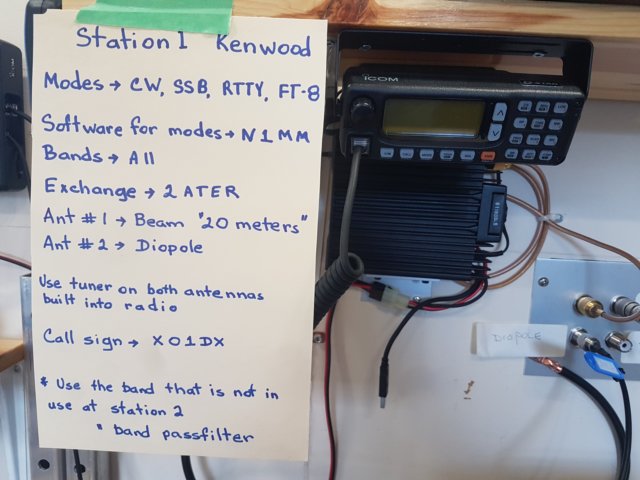 Station 1 Kenwood
Modes → CW, SSB, RTTY, FT-8
Software for modes → N1MM
Bands → All
Exchange → 2 ATER
Ant #1 → Beam "20 meters"
Ant #2 → Diopole
Use tuner on both antennas
built into radio
Call sign → XO1DX
* Use the band that is not in
use at station 2
" band passfilter
ICOM
DIOPOLE